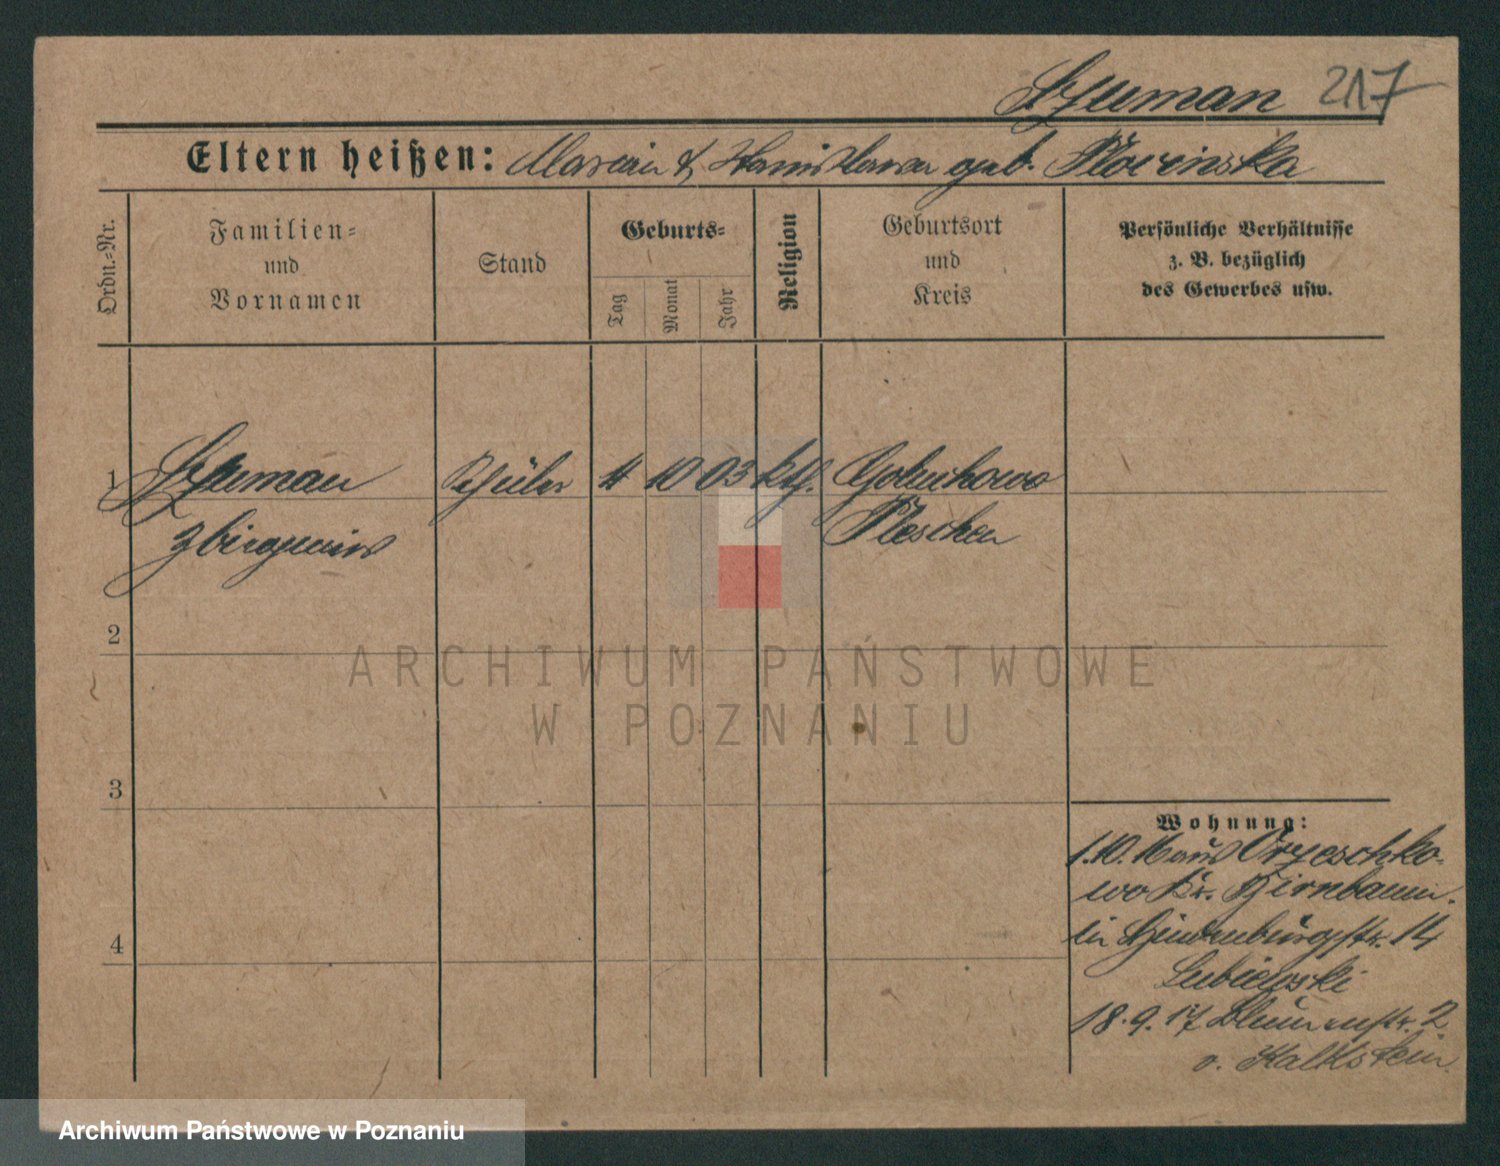 Szuman 217
Eltern heißen: Marcin & Stanislawa geb.
Ordn.-Nr.
Familien-
und
Vornamen
Stand
Geburts-
Tag
Monat
Jahr
Religion
Geburtsort
und
Kreis
Persönliche Verhältnisse
z. B. bezüglich
des Gewerbes usw.
1 Szuman Schüler 4 10 03 kth. Goluchowo
Zbigniew Pleschen
2
3
4
Wohnung:
1.10.16 aus Orzeschko-
wo Kr. Birnbaum.
bei Hindenburgstr. 14
Lubiewski
18.9.17 Blumenstr. 2
v. Kalkstein.
ARCHIWUM PAŃSTWOWE
W POZNANIU
Archiwum Państwowe w Poznaniu